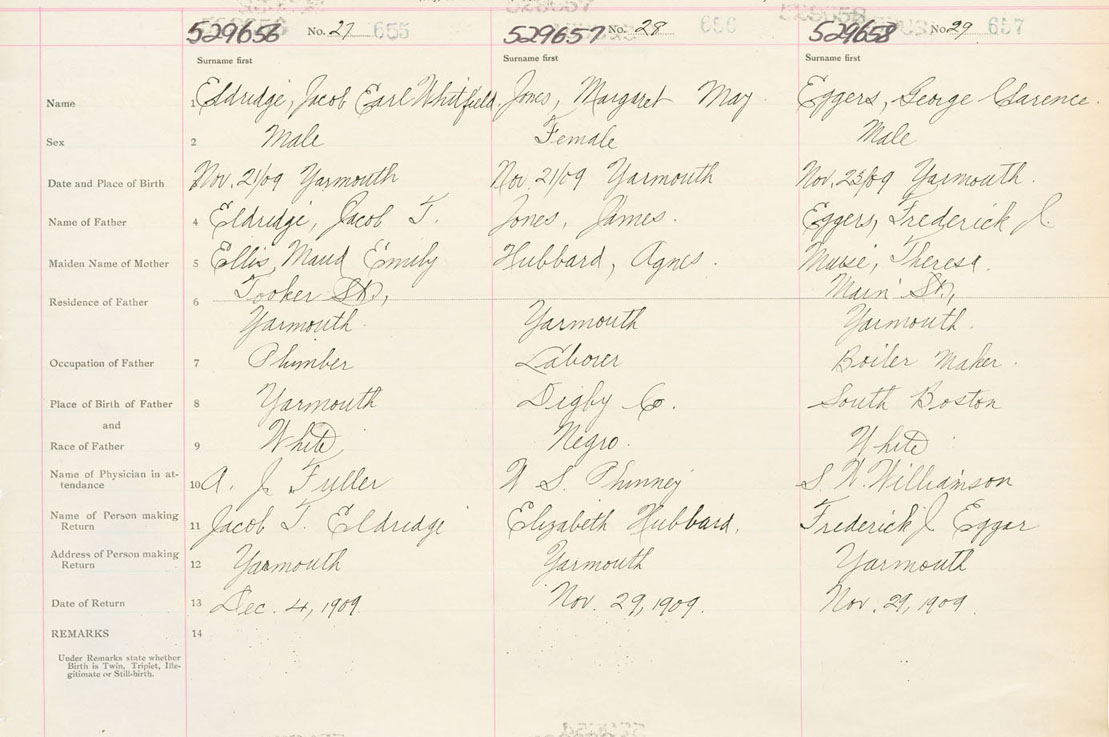 529656 No. 27 655 529657 No. 28 656 529658 No. 29 657
Surname first Surname first Surname first
Name 1 Eldridge, Jacob Earl Whitfield. Jones, Margaret May. Eggers, George Clarence.
Sex 2 Male Female Male
Date and Place of Birth 3 Nov. 21/09 Yarmouth Nov. 21/09 Yarmouth Nov. 23/09 Yarmouth.
Name of Father 4 Eldridge, Jacob T. Jones, James. Eggers, Frederick J.
Maiden Name of Mother 5 Ellis, Maud Emily Hubbard, Agnes. Muise, Theresa.
Residence of Father 6 Tooker St., Main St.,
Yarmouth. Yarmouth Yarmouth.
Occupation of Father 7 Plumber Laborer Boiler Maker.
Place of Birth of Father 8 Yarmouth Digby Co. South Boston
and
Race of Father 9 White Negro. White
Name of Physician in at-
tendance 10 A. J. Fuller W. S. Phinney S. W. Williamson
Name of Person making
Return 11 Jacob T. Eldridge Elizabeth Hubbard. Frederick J Eggar
Address of Person making
Return 12 Yarmouth Yarmouth Yarmouth
Date of Return 13 Dec. 4, 1909 Nov. 29, 1909. Nov. 29, 1909.
REMARKS 14
Under Remarks state whether
Birth is Twin, Triplet, Ille-
gitimate or Still-birth.